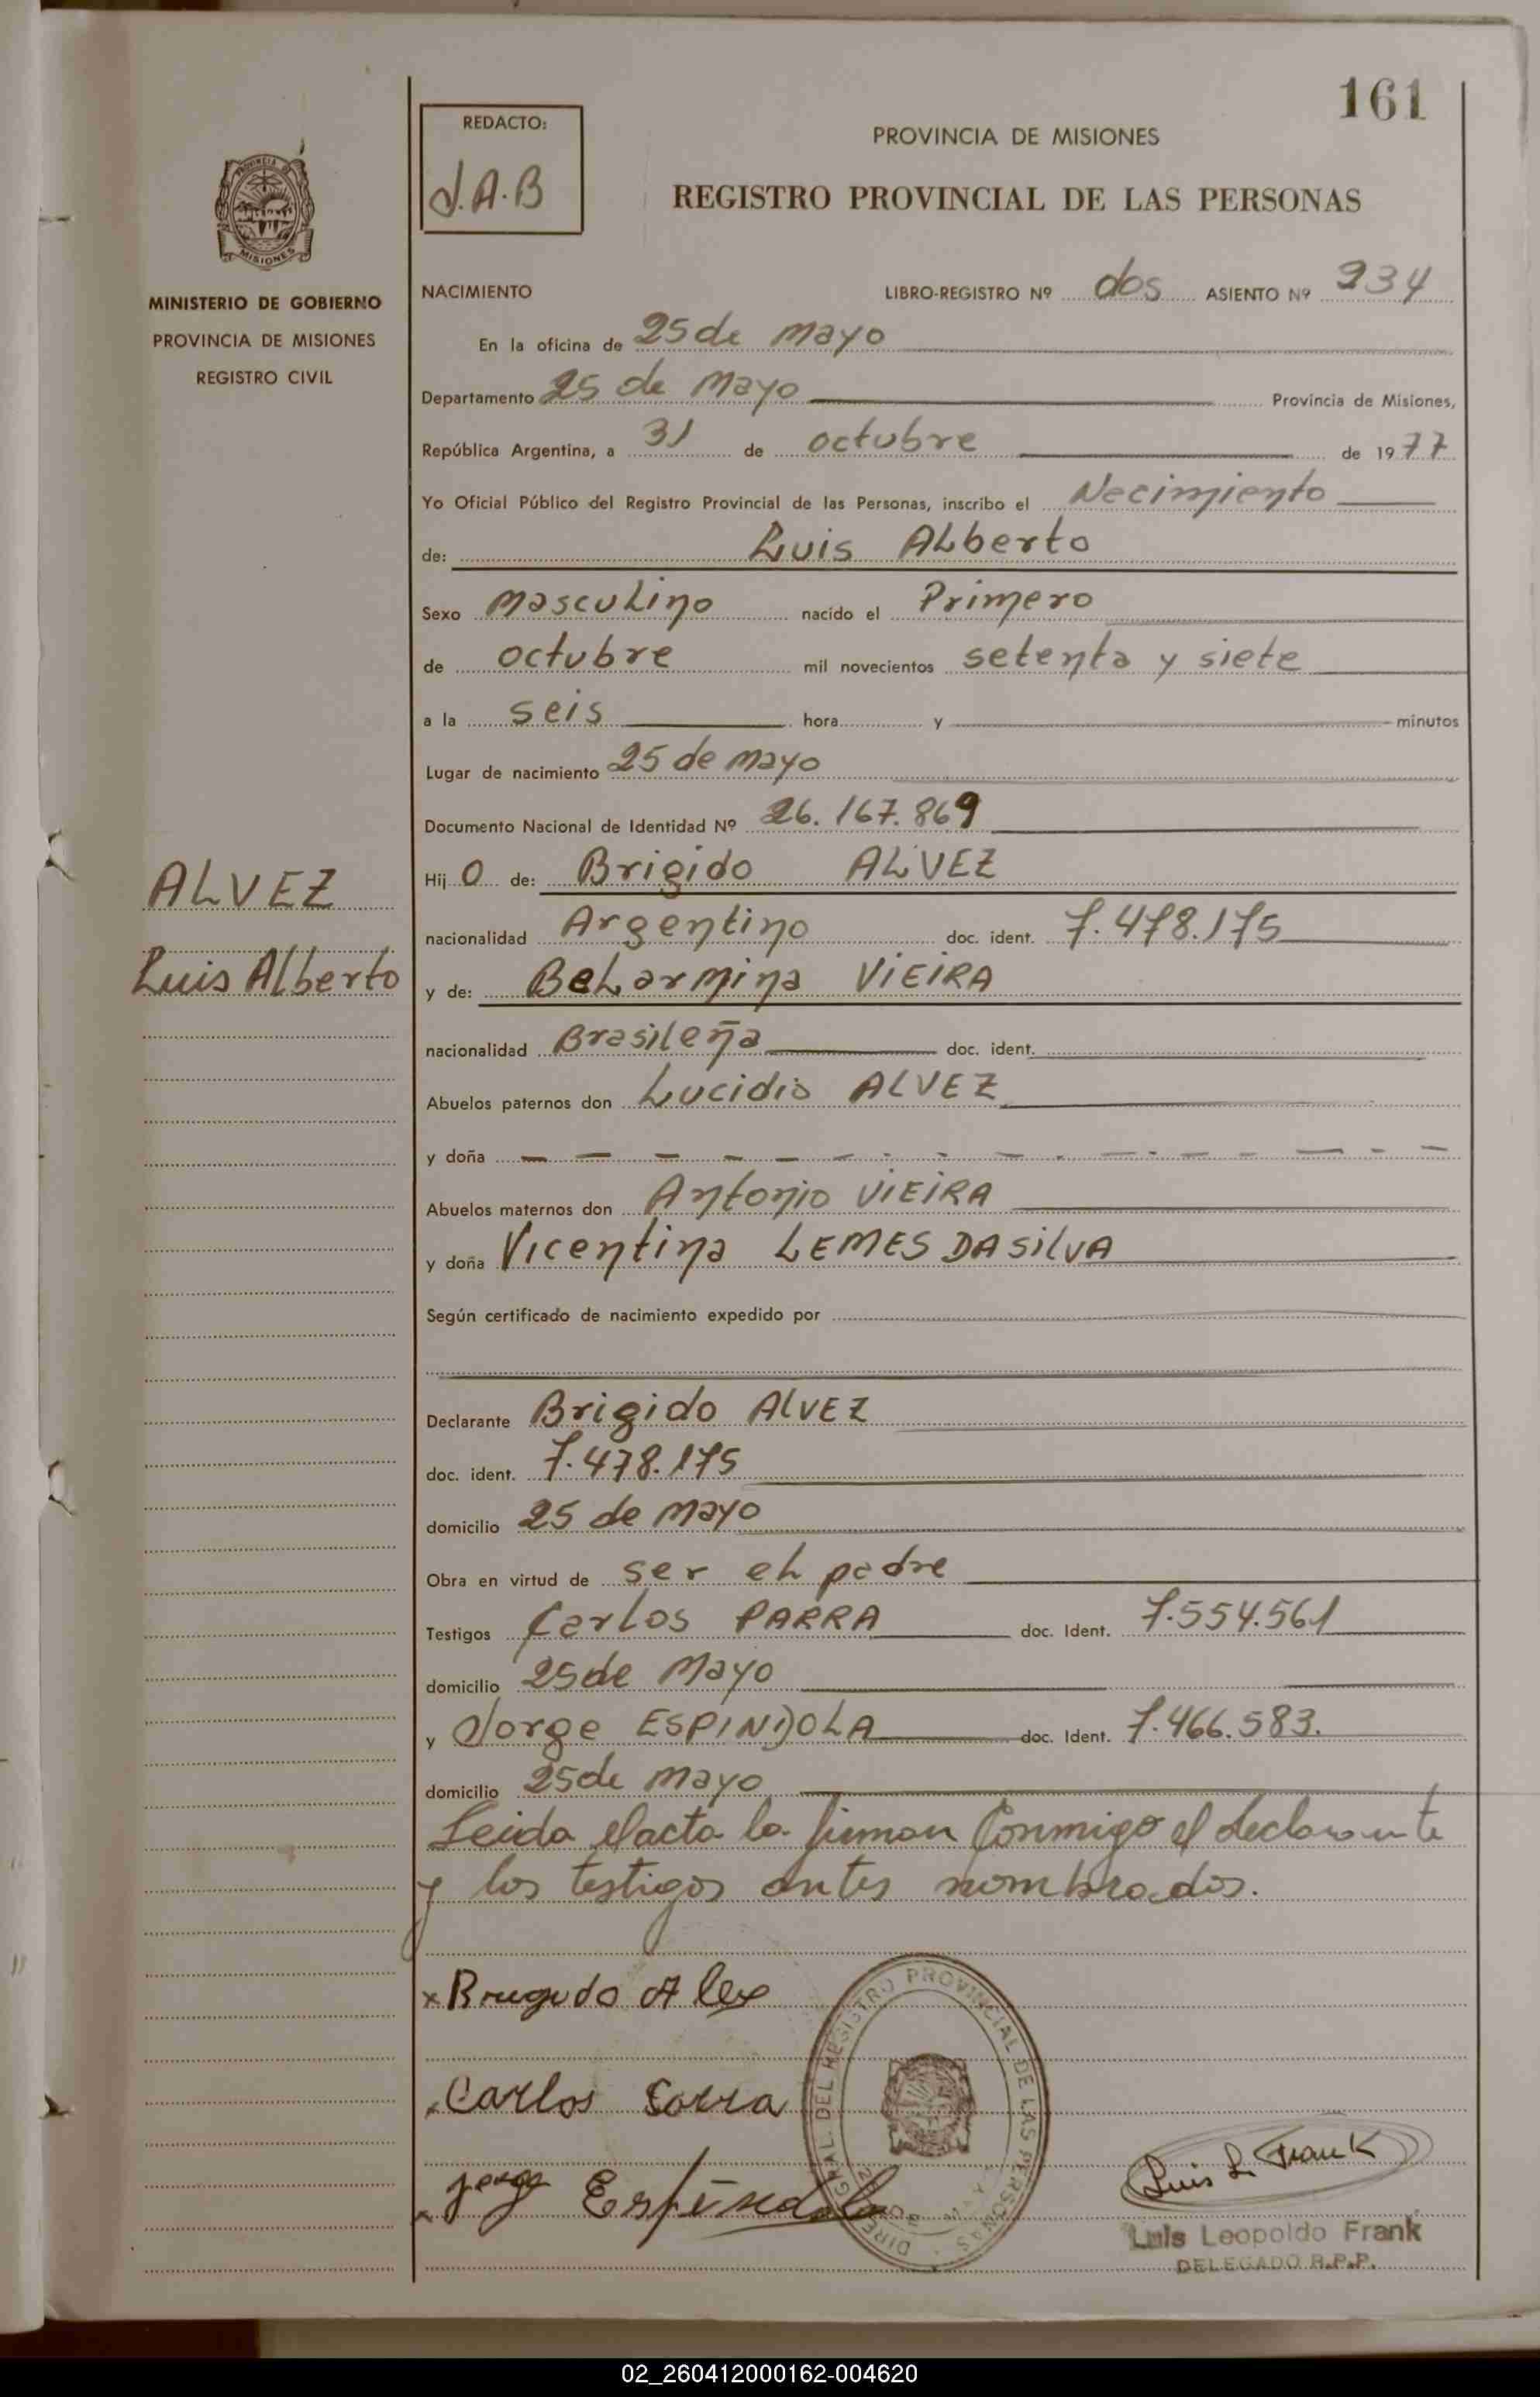 161
REDACTO:
J.A.B
PROVINCIA DE MISIONES
REGISTRO PROVINCIAL DE LAS PERSONAS
PROVINCIA DE
MISIONES
MINISTERIO DE GOBIERNO
PROVINCIA DE MISIONES
REGISTRO CIVIL
NACIMIENTO LIBRO-REGISTRO Nº dos ASIENTO Nº 234
En la oficina de 25 de mayo
Departamento 25 de mayo Provincia de Misiones,
República Argentina, a 31 de octubre de 1977
Yo Oficial Público del Registro Provincial de las Personas, inscribo el Necimiento
de: Luis ALberto
Sexo mascuLino nacido el Primero
de octubre mil novecientos setenta y siete
a la seis hora y minutos
Lugar de nacimiento 25 de mayo
Documento Nacional de Identidad Nº 26.167.869
Hij O de: Brigido ALVEZ
ALVEZ
Luis Alberto
nacionalidad Argentino doc. ident. 7.478.175
y de: BeLarmina VIEIRA
nacionalidad Brasileña doc. ident.
Abuelos paternos don Lucidio ALVEZ
y doña
Abuelos maternos don Antonio VIEIRA
y doña Vicentina LEMES DA SILVA
Según certificado de nacimiento expedido por
Declarante Brigido ALVEZ
doc. ident. 7.478.175
domicilio 25 de mayo
Obra en virtud de ser eL padre
Testigos CarLos PARRA doc. Ident. 7.554.561
domicilio 25 de mayo
y Jorge ESPINDOLA doc. Ident. 7.466.583.
domicilio 25 de mayo
Leida el acta la firman Conmigo el declarante
y los testigos antes nombrados.
x Brugudo Alex
Carlos Sarra
Jorge Espíndola
DIRE GRAL. DEL REGISTRO PROVINCIAL DE LAS PERSONAS
Luis L. Frank
Luis Leopoldo Frank
DELEGADO R.P.P.
02_260412000162-004620